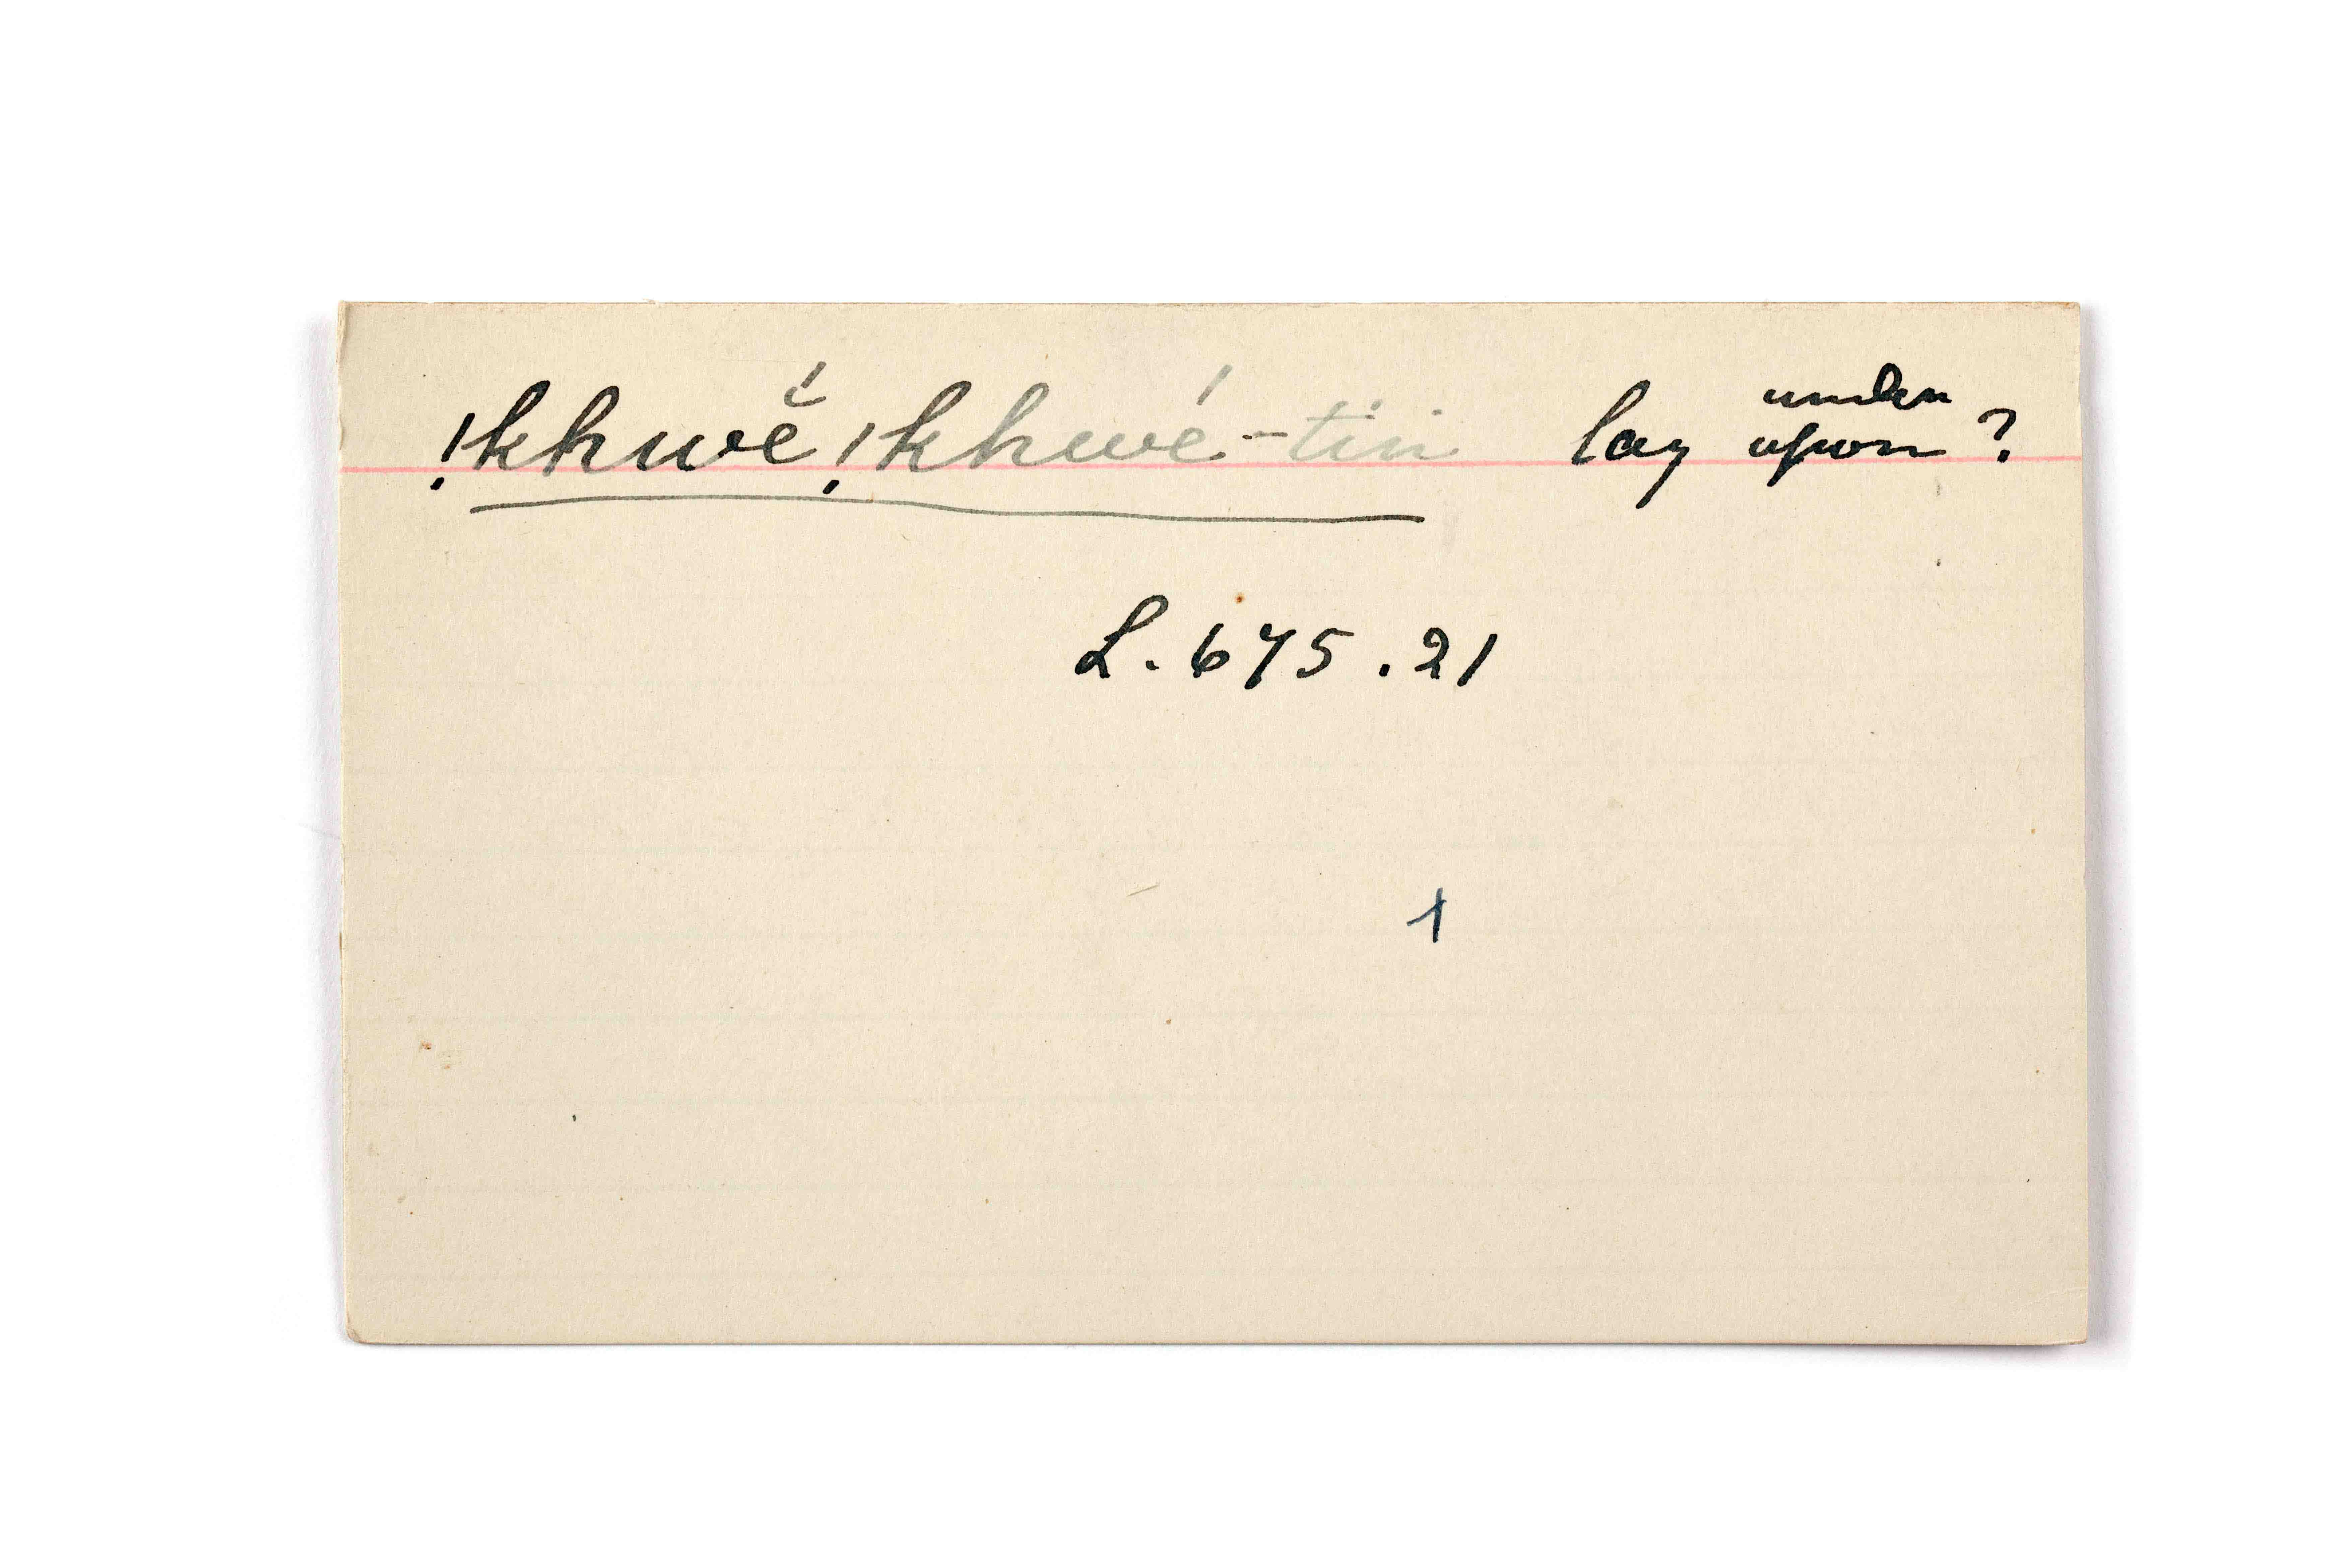 under
!khwĕ́!khwé-tin lay upon?
L. 675.21
1